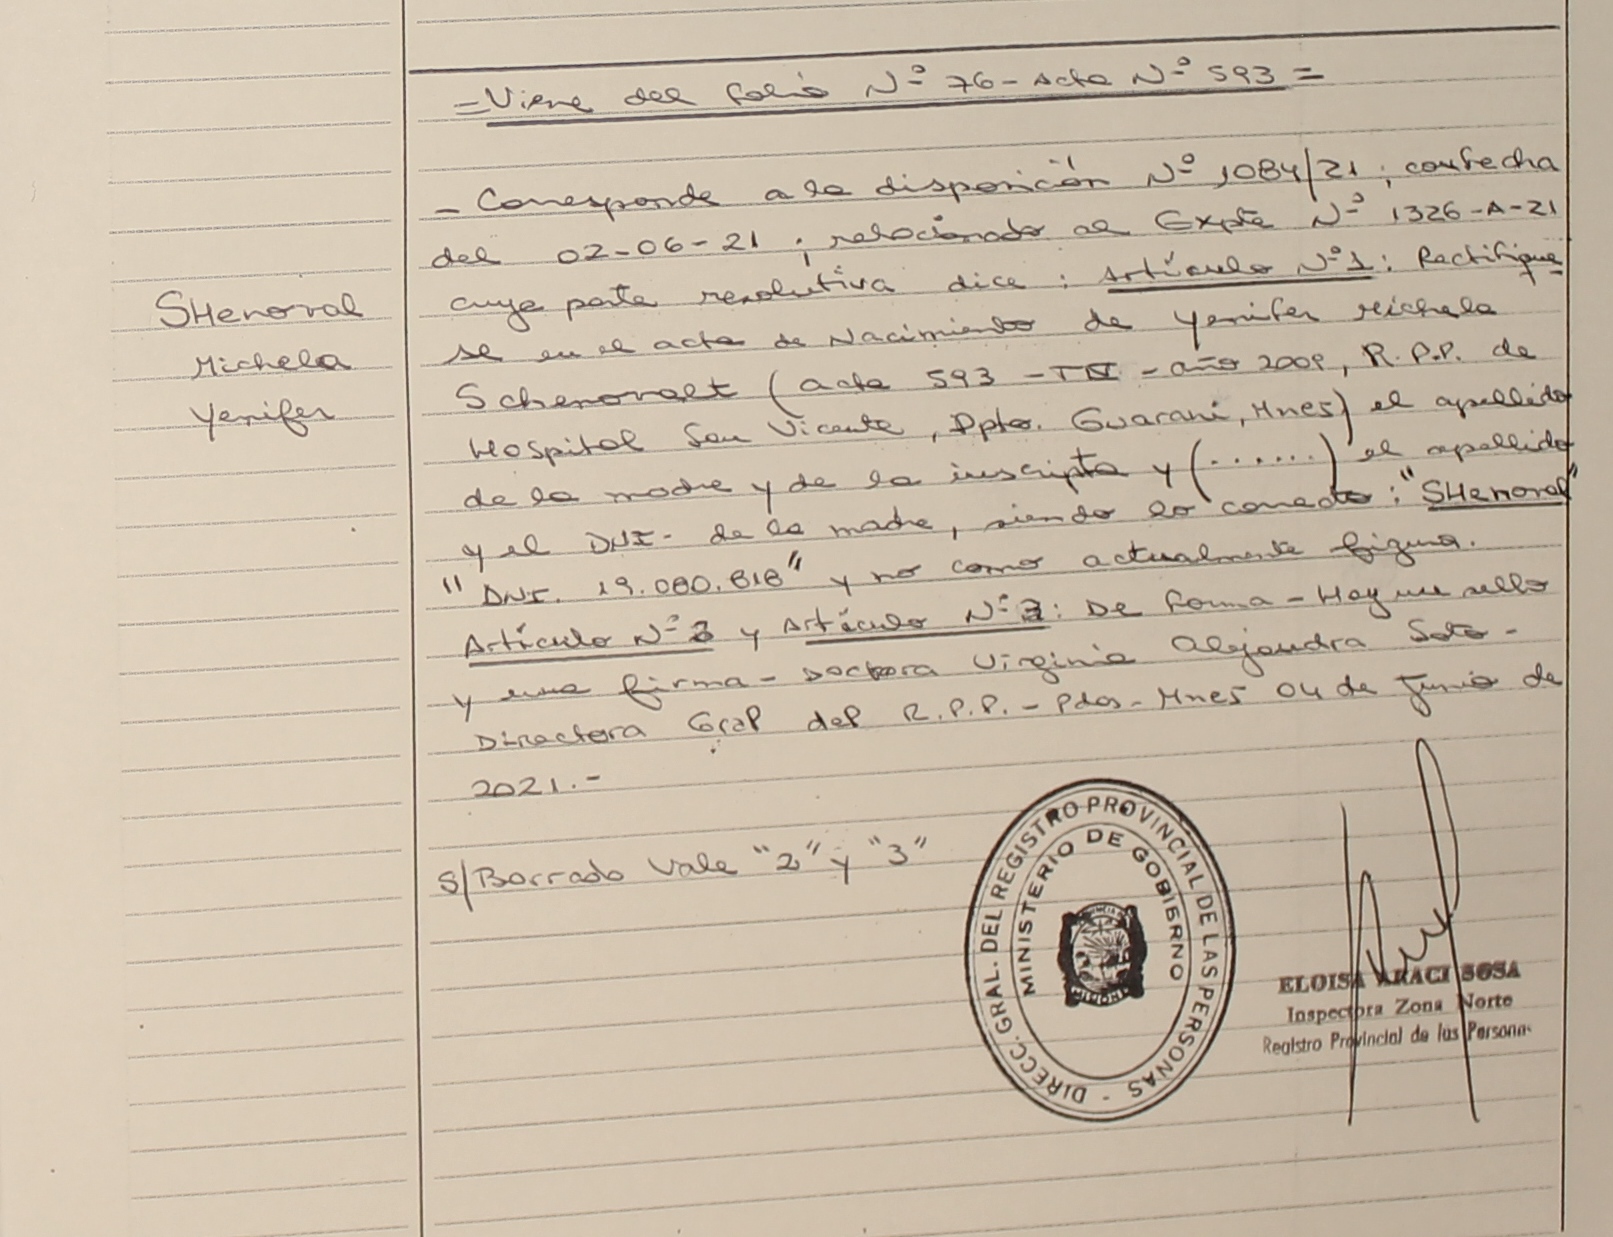 = Viene del folio Nº 76 - Acta Nº 593 =
- Corresponde a la disposición Nº 1084/21; con fecha
del 02-06-21; relacionado al Expte Nº 1326-A-21
cuya parte resolutiva dice: Artículo Nº 1: Rectifique
se en el acta de Nacimiento de Yenifer Michela
Schenovalt (acta 593 - TIV - año 2009, R.P.P. de
Hospital San Vicente, Dpto. Guaraní, Mnes) el apellido
de la madre y de la inscripta y (......) el apellido
y el DNI. de la madre, siendo lo correcto: "SHenoval"
"DNI. 19.080.818" y no como actualmente figura.
Artículo Nº 2 y Artículo Nº 3: De forma - Hay un sello
y una firma - Doctora Virginia Alejandra Soto -
Directora Gral del R.P.P. - Pdas - Mnes 04 de Junio de
2021.-
S/Borrado Vale "2" y "3"
SHenoval
Michela
Yenifer
DIRECC. GRAL. DEL REGISTRO PROVINCIAL DE LAS PERSONAS -
MINISTERIO DE GOBIERNO
ELOISA ARACI SOSA
Inspectora Zona Norte
Registro Provincial de las Personas